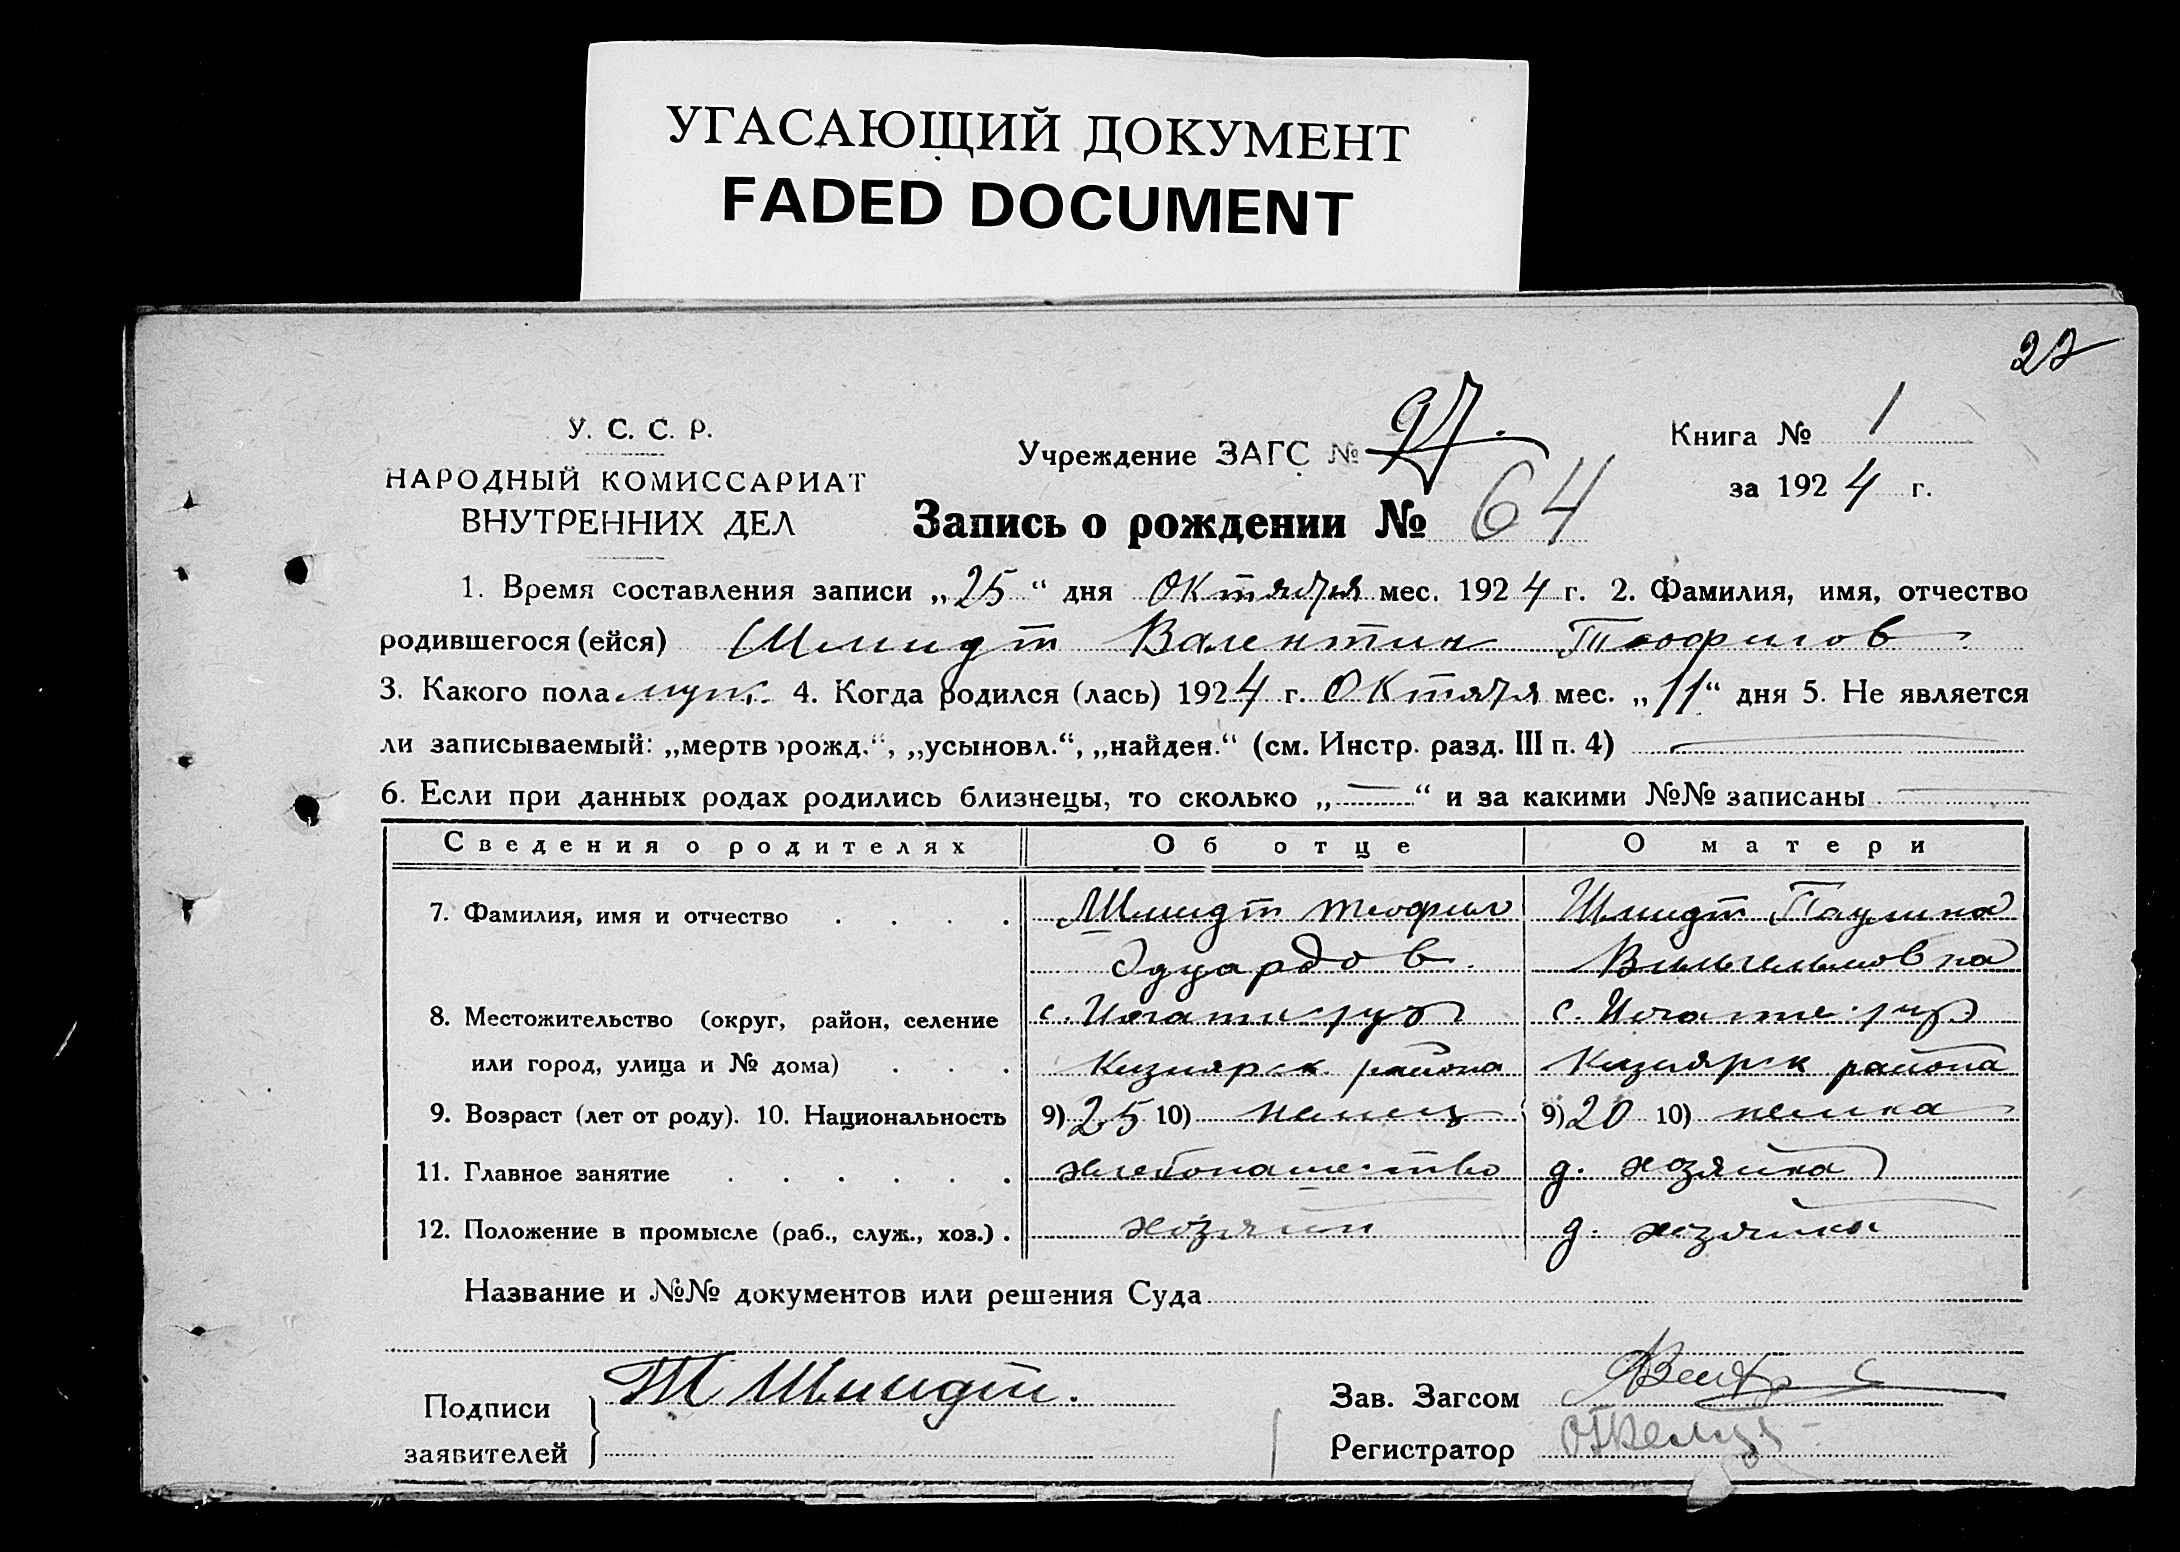 УГАСАЮЩИЙ ДОКУМЕНТ
FADED DOCUMENT
22
У. С. С. Р.
НАРОДНЫЙ КОМИССАРИАТ
ВНУТРЕННИХ ДЕЛ
Учреждение ЗАГС № 27.
Книга № 1
за 1924 г.
Запись о рождении № 64
1. Время составления записи „25“ дня Октября мес. 1924 г. 2. Фамилия, имя, отчество
родившегося (ейся) Шмидт Валентин Теофилов
3. Какого пола муж. 4. Когда родился (лась) 1924 г. Октября мес. „11“ дня 5. Не является
ли записываемый: „мертворожд.“, „усыновл.“, „найден.“ (см. Инстр. разд. III п. 4) —
6. Если при данных родах родились близнецы, то сколько „—“ и за какими №№ записаны —
Сведения о родителях Об отце О матери
7. Фамилия, имя и отчество . . . . Шмидт Теофил Шмидт Паулина
Эдуардов. Вильгельмовна
8. Местожительство (округ, район, селение с. с.
или город, улица и № дома) . . . Кизиярск района Кизиярск района
9. Возраст (лет от роду). 10. Национальность 9) 25 10) немец 9) 20 10) немка
11. Главное занятие . . . . . . хлебопашество д. хозяйка
12. Положение в промысле (раб., служ., хоз.) . хозяин д. хозяйка
Название и №№ документов или решения Суда
Подписи
заявителей
Т Шмидт.
Зав. Загсом
Регистратор